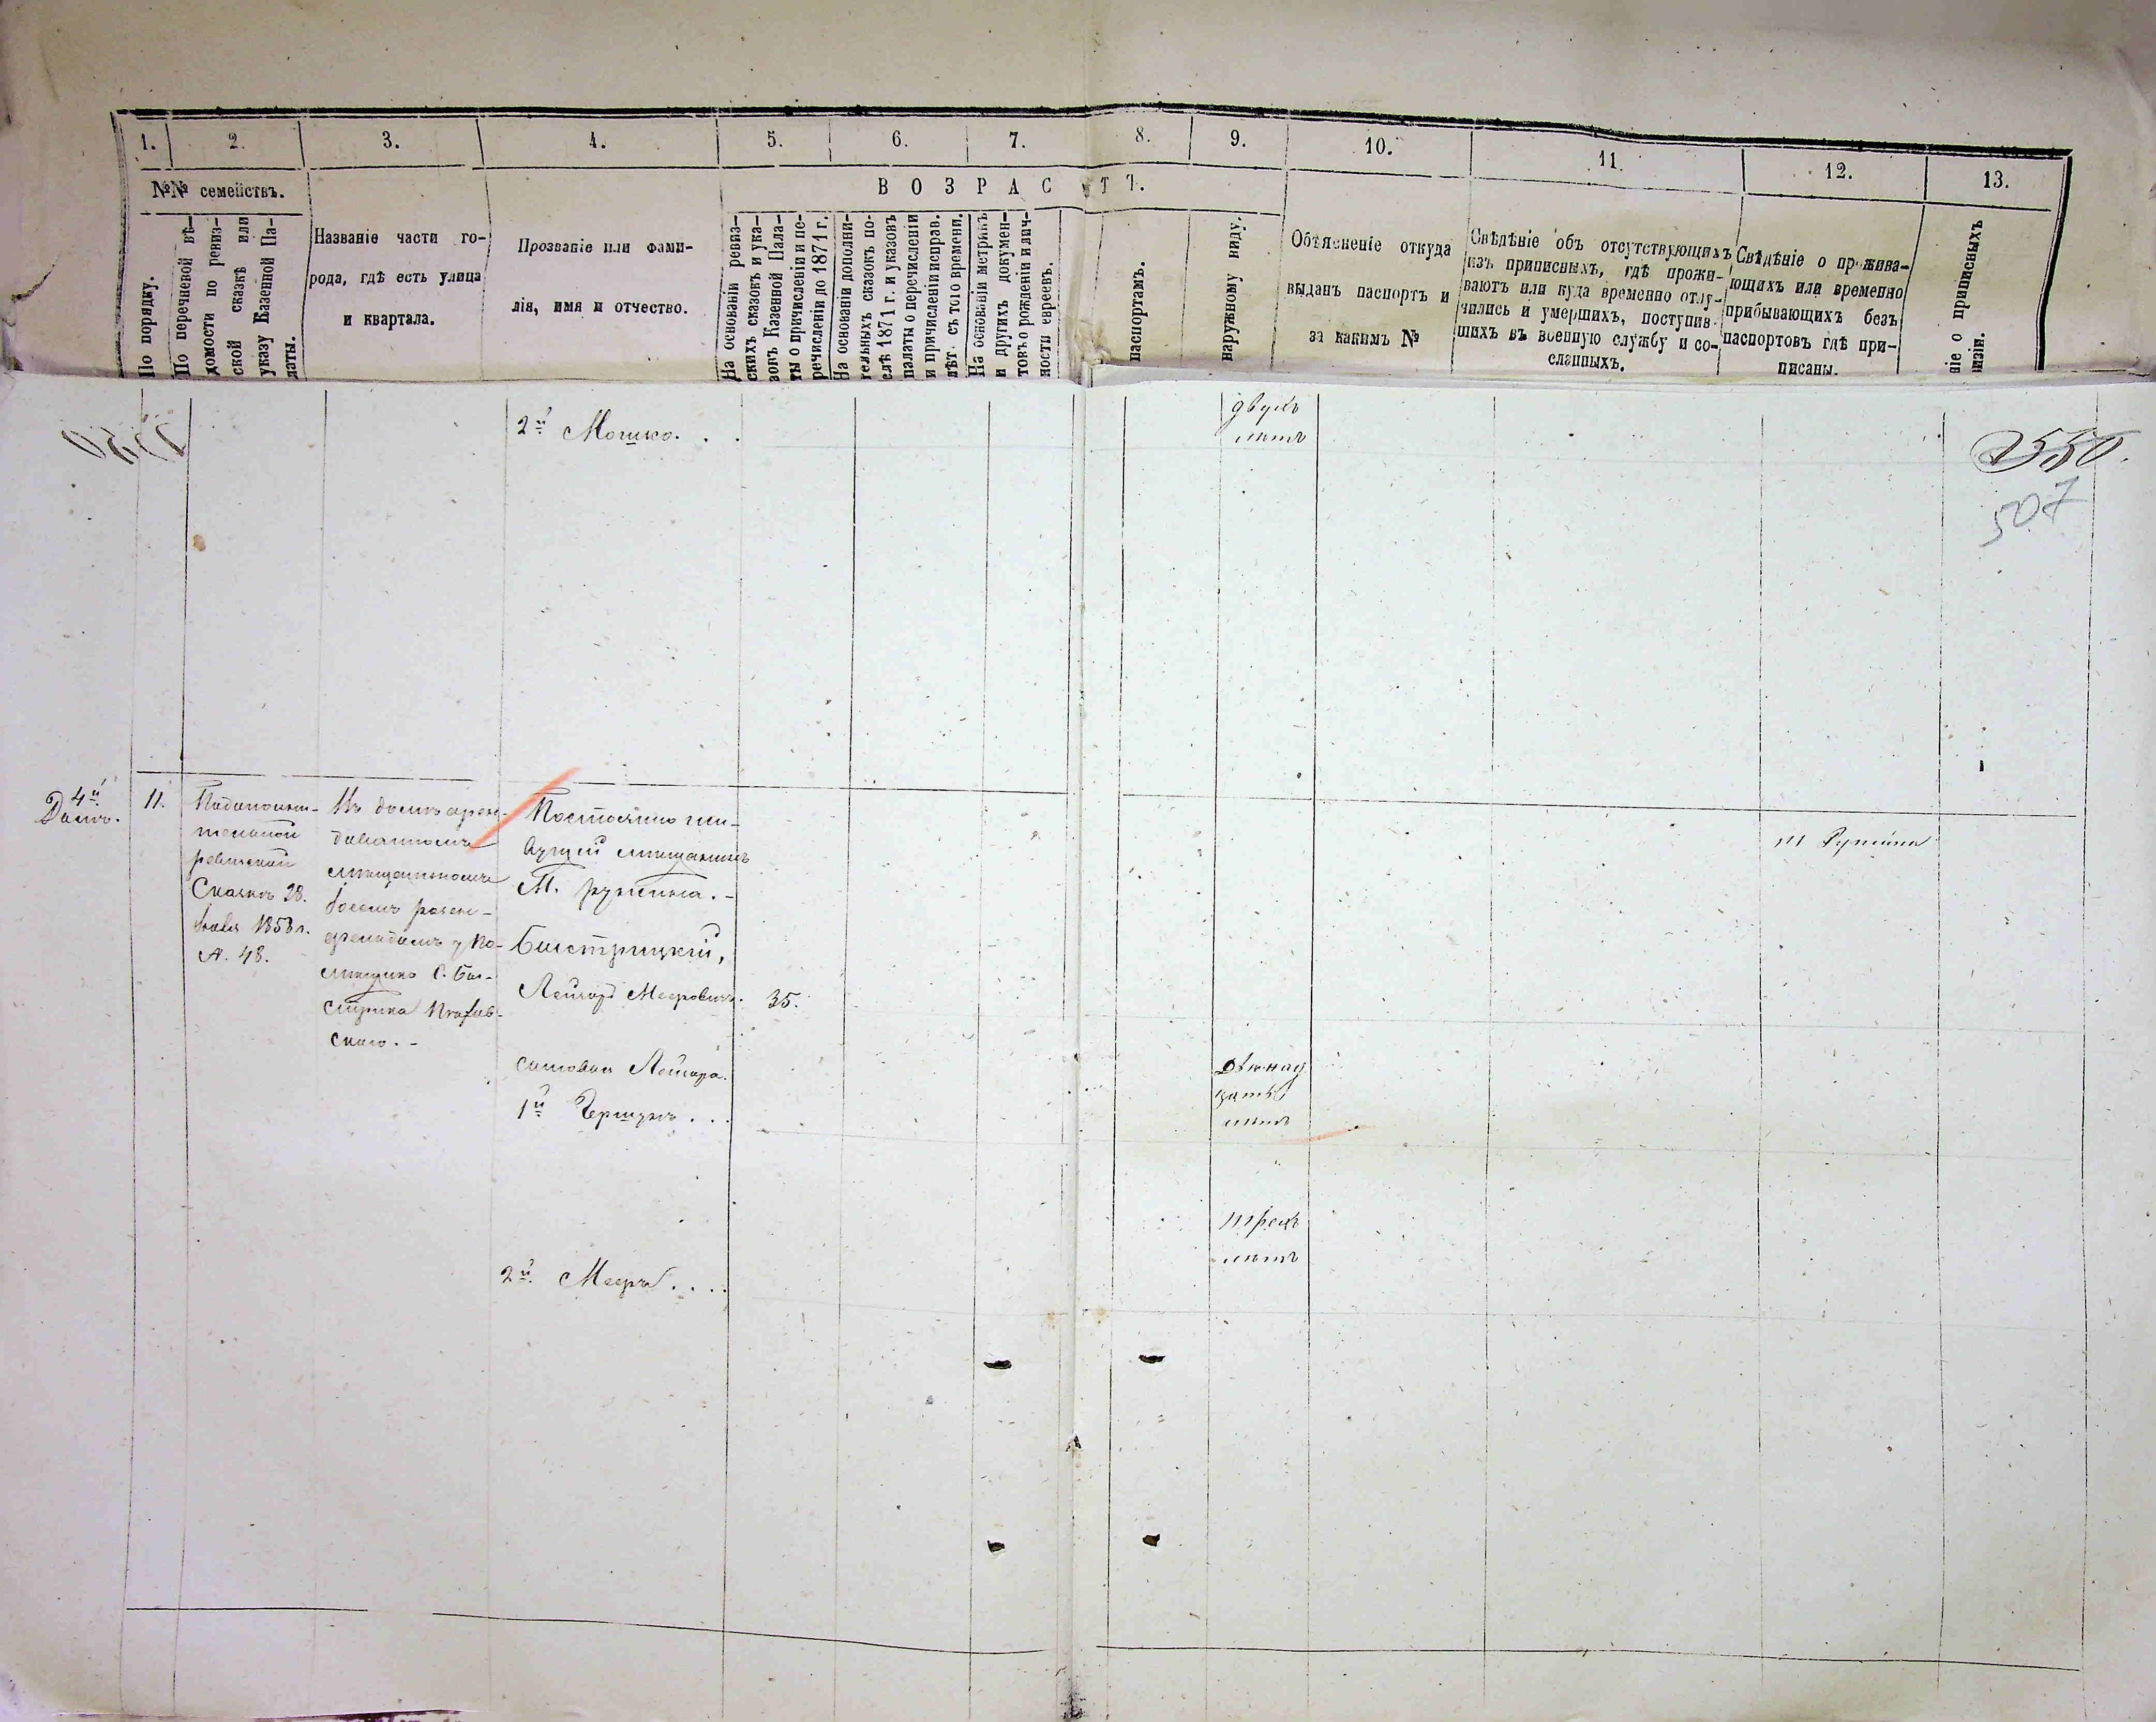 1. 2. 3. 4. 5. 6. 7. 8. 9. 10. 11. 12. 13.
№№ семействъ.
ВОЗРАСТЪ.
По порядку.
По перечневой вѣ-
домости по ревиз-
ской сказкѣ или
указу Казенной Па-
латы.
Названіе части го-
рода, гдѣ есть улица
и квартала.
Прозваніе или фами-
лія, имя и отчество.
На основаніи ревиз-
скихъ сказокъ и ука-
зовъ Казенной Пала-
ты о причисленіи и пе-
речисленіи до 1871 г.
На основаніи дополни-
тельныхъ сказокъ по-
слѣ 1871 г. и указовъ
палаты о перечисленіи
и причисленіи исправ.
лѣт. съ того времени.
На основаніи метрикъ
и другихъ докумен-
товъ о рожденіи и лич-
ности евреевъ.
паспортамъ.
наружному виду.
Объясненіе откуда
выданъ паспортъ и
за какимъ №
Свѣдѣніе объ отсутствующихъ
изъ приписныхъ, гдѣ прожи-
ваютъ или куда временно отлу-
чились и умершихъ, поступив-
шихъ въ военную службу и со-
сланныхъ.
Свѣдѣніе о прожива-
ющихъ или временно
прибывающихъ безъ
паспортовъ гдѣ при-
писаны.
ніе о приписныхъ
изіи.
2й Мошко. . .
двухъ
лѣтъ
550.
507
4й
Домъ.
11.
ревизской
Сказкѣ 28.
1858 г.
48.
Въ домѣ арен-
дованномъ
мѣщаниномъ
у по-
мѣщика С. Бы-
стрика
скаго. -
Постоянно жи-
вущій мѣщанинъ
М. Ружина. -
Быстрицкій,
Лейзоръ Мееровичъ.
35.
м Ружина
сыновья Лейзора.
1й Гершунъ . . .
Двѣнад
цать
лѣтъ
2й Мееръ . . . .
трехъ
лѣтъ